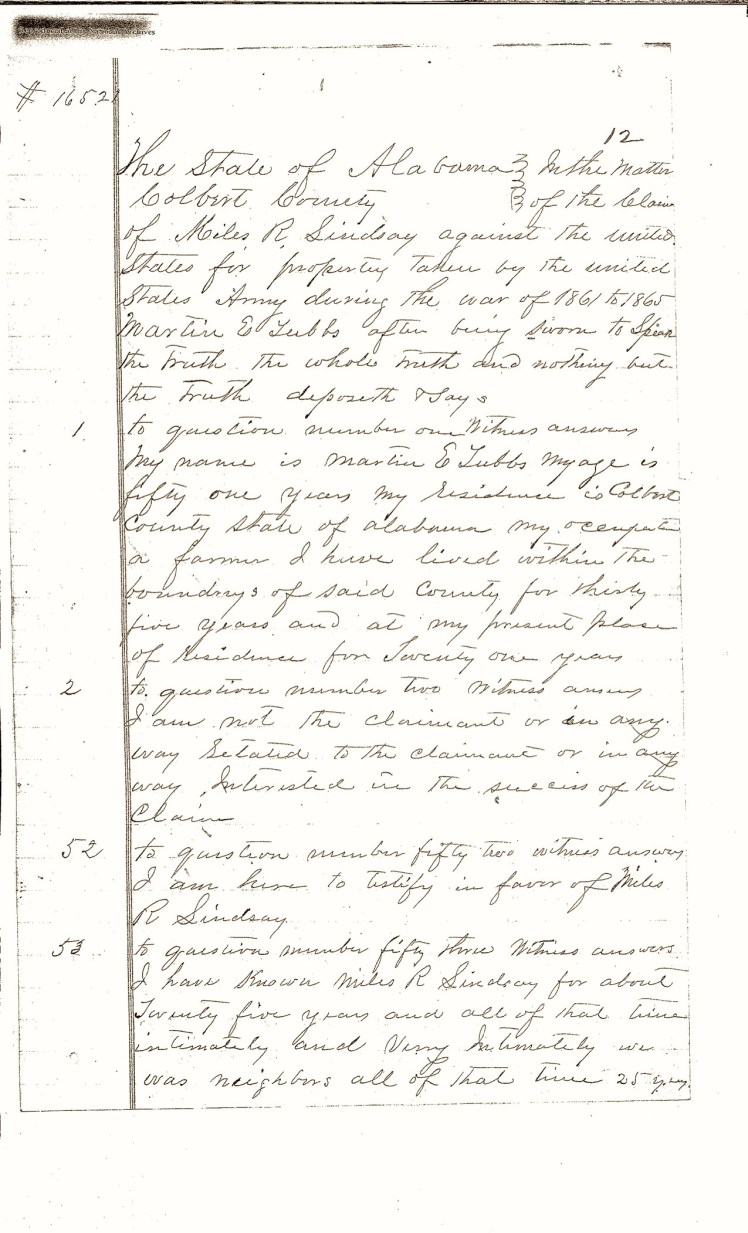 Reproduced at the National Archives
# 16521
12
The State of Alabama } In the Matter
Colbert County } of the Claim
of Miles R. Lindsay against the united
States for property taken by the united
States Army during the war of 1861 to 1865
Martin E Tubbs after being sworn to Speak
the Truth the whole Truth and nothing but
the Truth deposeth & Says
1 to question number one Witness answers
My name is Martin E Tubbs My age is
fifty one years My Residence is Colbert
County State of alabama my occupati
a farmer I have lived within the
boundrys of said County for thirty
five years and at my present place
of Residence for Twenty one years
2 to question number two Witness answers
I am not the claimant or in any
way Related to the claimant or in any
way Interested in the success of the
Claim
52 to question number fifty two witness answers
I am here to testify in favor of Miles
R Lindsay
53 to question number fifty three Witness answers
I have Known Miles R Lindsay for about
Twenty five years and all of that time
intimately and Verry Intimately we
was neighbors all of that time 25 years